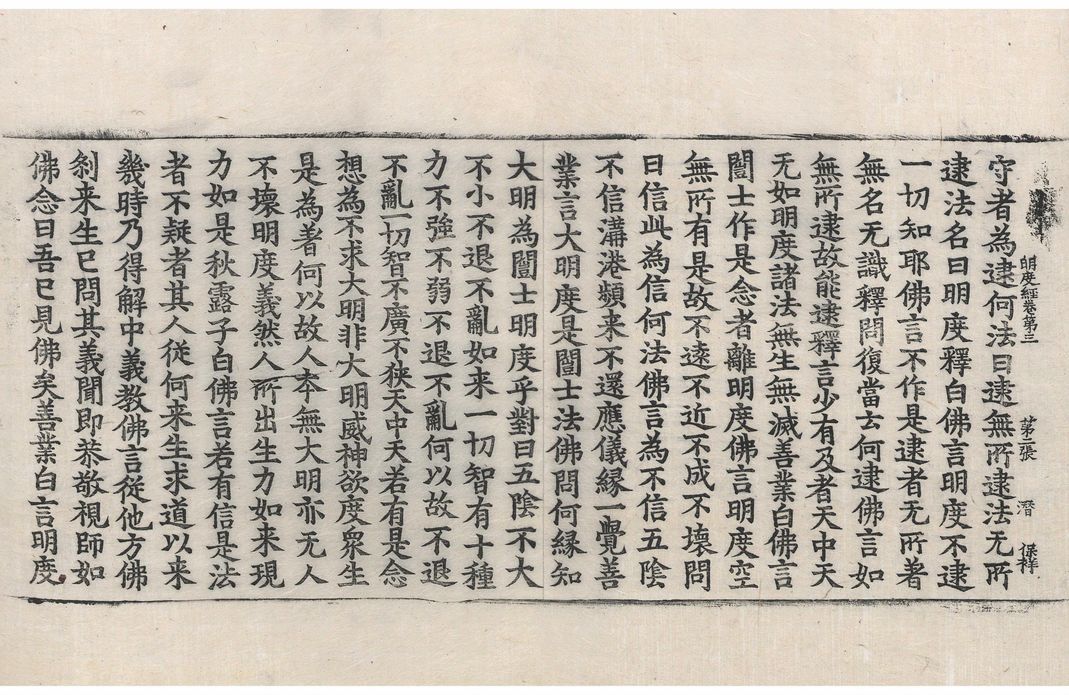 明度經卷第三 第二張 潛 保梓
守者為逮何法曰逮無所逮法无所
逮法名曰明度釋白佛言明度不逮
一切知耶佛言不作是逮者无所著
無名无識釋問復當云何逮佛言如
無所逮故能逮釋言少有及者天中天
无如明度諸法無生無滅善業白佛言
闓士作是念者離明度佛言明度空
無所有是故不遠不近不成不壞問
曰信此為信何法佛言為不信五陰
不信溝港頻来不還應儀縁一覺善
業言大明度是闓士法佛問何縁知
大明為闓士明度乎對曰五陰不大
不小不退不亂如来一切智有十種
力不強不弱不退不亂何以故不退
不亂一切智不廣不狹天中天若有是念
想為不求大明非大明威神欲度衆生
是為著何以故人夲無大明亦无人
不壞明度義然人所出生力如来現
力如是秋露子白佛言若有信是法
者不疑者其人從何来生求道以来
幾時乃得解中義教佛言從他方佛
刹来生已問其義聞即恭敬視師如
佛念曰吾已見佛矣善業白言明度